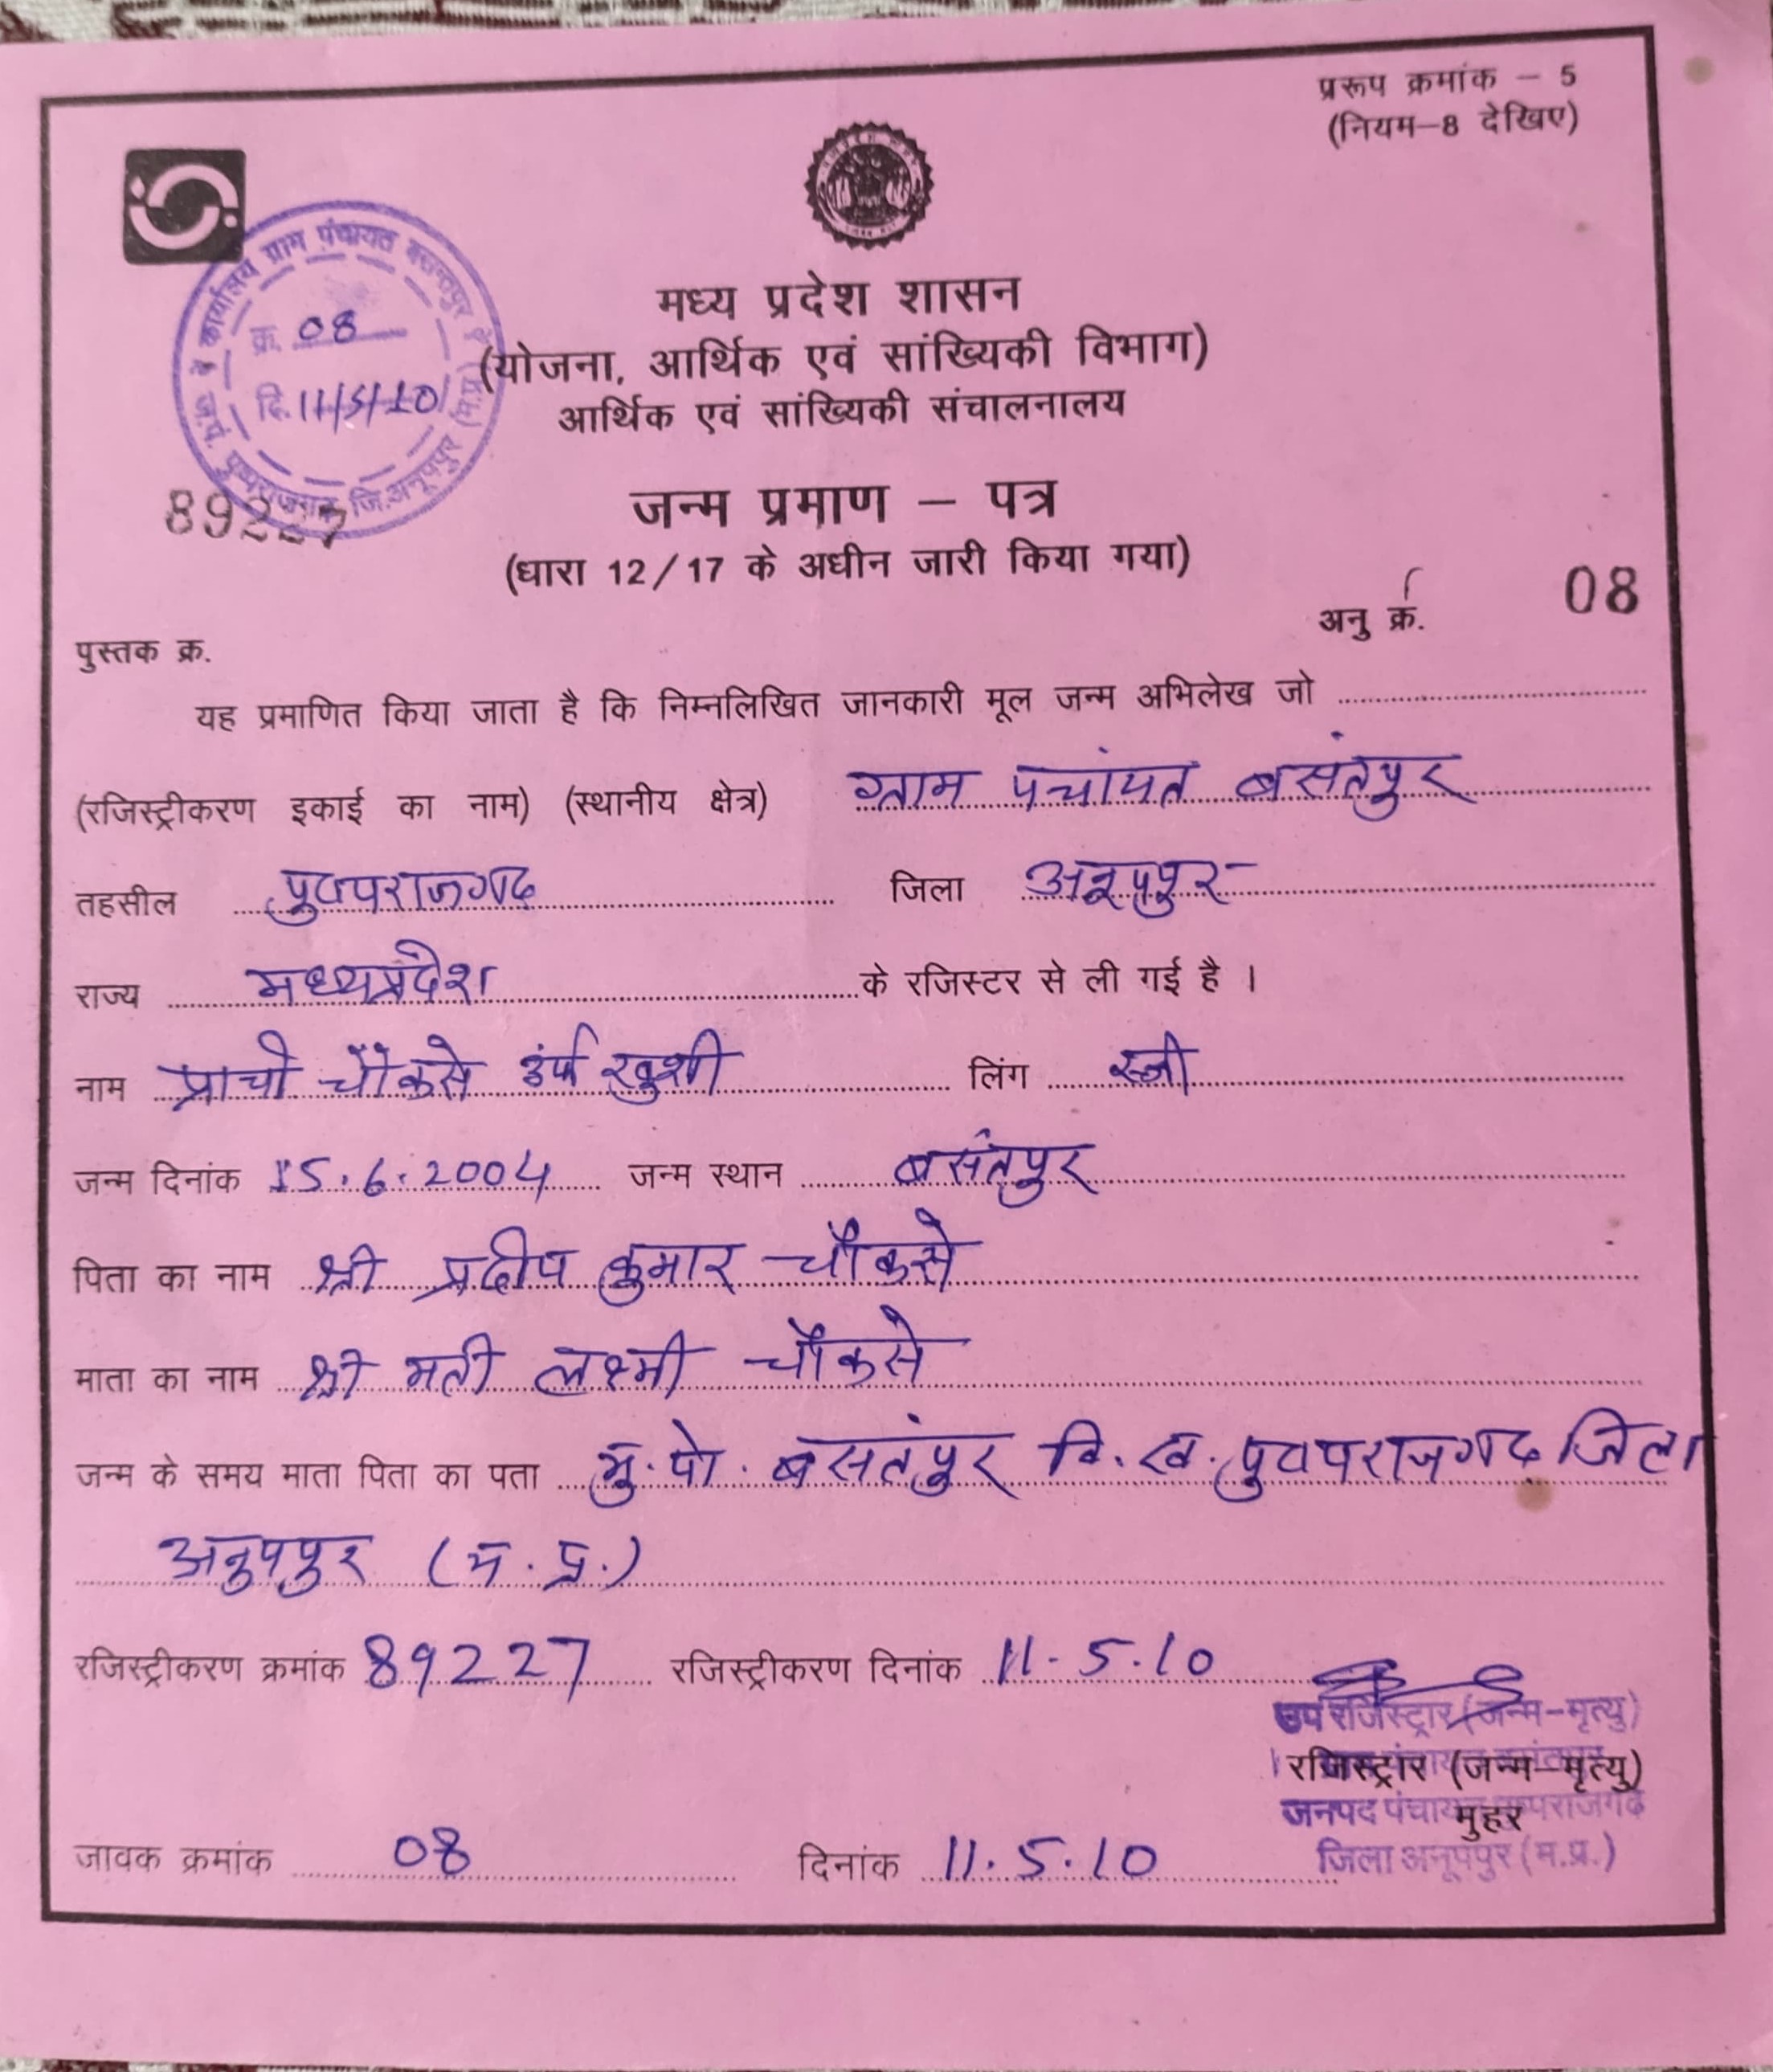 प्ररूप क्रमांक – 5
(नियम–8 देखिए)
कार्यालय ग्राम पंचायत बसन्तपुर
क्र. 08
दि. 11/5/10
ज.पं. पुष्पराजगढ़ जि. अनूपपुर (म.प्र.)
मध्य प्रदेश शासन
(योजना, आर्थिक एवं सांख्यिकी विभाग)
आर्थिक एवं सांख्यिकी संचालनालय
89227
जन्म प्रमाण – पत्र
(धारा 12/17 के अधीन जारी किया गया)
अनु क्र. 08
पुस्तक क्र.
यह प्रमाणित किया जाता है कि निम्नलिखित जानकारी मूल जन्म अभिलेख जो
(रजिस्ट्रीकरण इकाई का नाम) (स्थानीय क्षेत्र) ग्राम पचांयत बसंतपुर
तहसील पुष्पराजगढ जिला अनूपपुर
राज्य मध्यप्रदेश के रजिस्टर से ली गई है ।
नाम प्राची चौंकसे उर्फ खुशी लिंग स्त्री
जन्म दिनांक 15.6.2004 जन्म स्थान बसंतपुर
पिता का नाम श्री प्रदीप कुमार चौकसे
माता का नाम श्री मती लक्ष्मी चौकसे
जन्म के समय माता पिता का पता मु. पो. बसतंपुर वि. ख. पुष्पराजगढ जिला
अनुपपुर (म. प्र.)
रजिस्ट्रीकरण क्रमांक 89227 रजिस्ट्रीकरण दिनांक 11.5.10
उप रजिस्ट्रार (जन्म–मृत्यु)
रजिस्ट्रार (जन्म–मृत्यु)
जनपद पंचायत पुष्पराजगढ
मुहर
जिला अनूपपुर (म.प्र.)
जावक क्रमांक 08 दिनांक 11.5.10